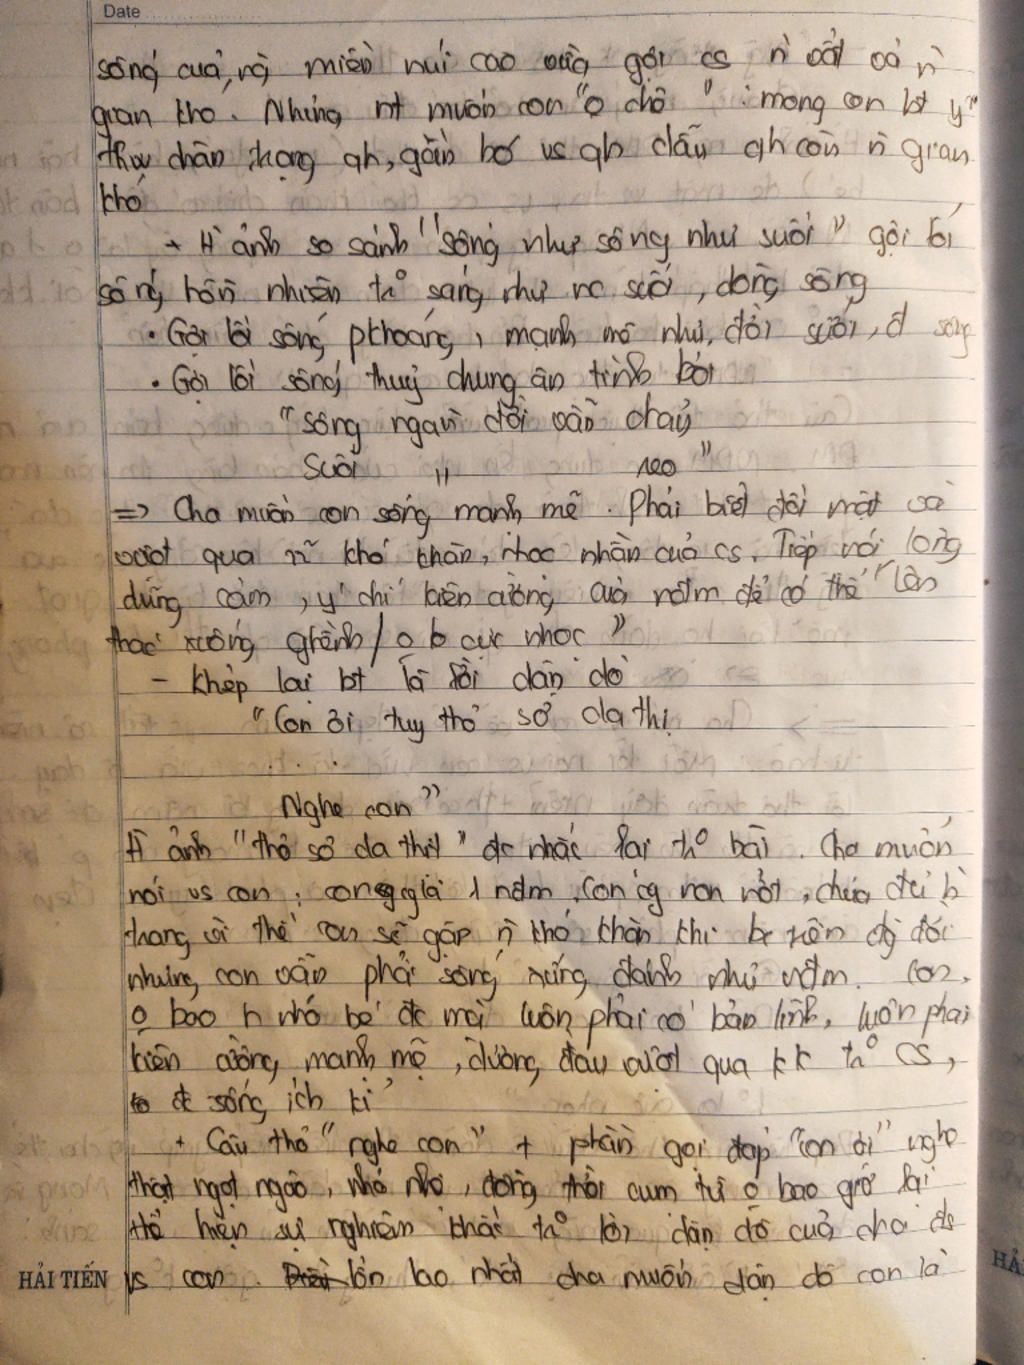 Date
sống của ng miền núi cao vừa gợi cs n vất vả n
gian khó. Nhưng nt muốn con "o chê" : mong con bt y
thự chân trọng qh, gắn bó vs qh dẫu qh còn n gian
khó
+ H ảnh so sánh "sống như sông như suối" gợi lối
sống hồn nhiên tr sáng như nc suối, dòng sông
• Gợi lối sống pkhoáng, mạnh mẽ như đời suối, đ sông
• Gợi lối sống thuỷ chung ân tình bởi
"Sông ngàn đời vẫn chảy
Suối " reo "
=> Cha muốn con sống mạnh mẽ. Phải biết đối mặt và
vượt qua n~ khó khăn, nhọc nhằn của cs. Tiếp nối lòng
dũng cảm, ý chí kiên cường của nđm để có thể "lên
thác xuống ghềnh / o lo cực nhọc"
- Khép lại bt là lời dặn dò
"Con ơi tuy thô sơ da thịt
. . .
Nghe con"
H ảnh "thô sơ da thịt" đc nhắc lại tr bài. Cha muốn
nói vs con: con giờ 1 nđm, con cg non nớt, chưa đủ h
trang vì thế con sẽ gặp n khó khăn khi bc trên đg đời
nhưng con vẫn phải sống xứng đánh như nđm. Con
o bao h nhỏ bé đc mà luôn phải có bản lĩnh, luôn phải
kiên cường, mạnh mẽ, đương đầu vượt qua kk tr cs,
o đc sống ích kỉ
+ Câu thơ "nghe con" + phần gọi đáp "con ơi" nghe
thật ngọt ngào, nhỏ nhẹ, đồng thời cụm từ o bao giờ lại
thể hiện sự nghiêm khắc tr lời dặn dò của cha đc
vs con. lớn lao nhất cha muốn dặn dò con là
HẢI TIẾN
HẢ